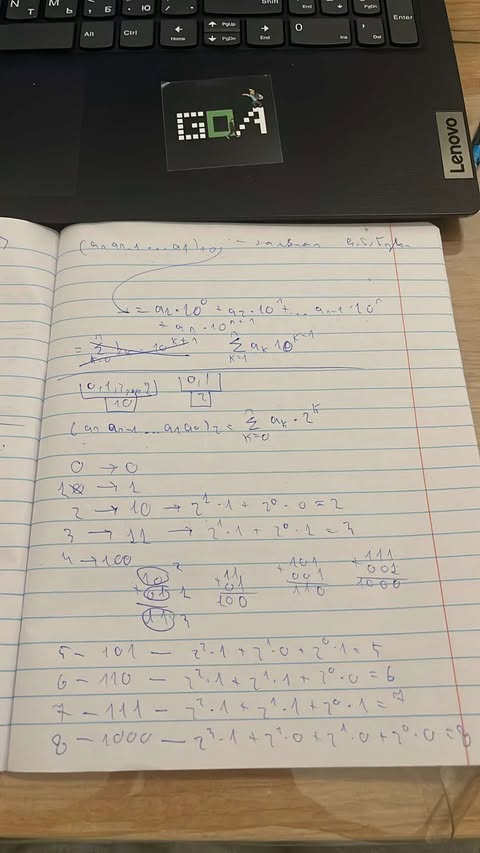 N Т
М Ь
, Б
. Ю
Shift
Alt
Ctrl
Home
PgUp
PgDn
End
0
Ins
Del
Enter
GDA
Lenovo
(an an-1 ... a1)10
= a1·10^0 + a2·10^1 + ... an-1·10^n
+ an·10^n-1
= Σ k=0 n 10^k+1 Σ k=1 n ak 10^k-1
0,1,2,...,9 0,1
10 2
(an an-1 ... a1 a0)2 = Σ k=0 n ak · 2^k
0 → 0
1 → 1
2 → 10 → 2^1·1 + 2^0·0 = 2
3 → 11 → 2^1·1 + 2^0·1 = 3
4 → 100
10 2 + 11 + 101 + 111
+ 01 1 01 001 001
11 3 100 110 1000
5 - 101 - 2^2·1 + 2^1·0 + 2^0·1 = 5
6 - 110 - 2^2·1 + 2^1·1 + 2^0·0 = 6
7 - 111 - 2^2·1 + 2^1·1 + 2^0·1 = 7
8 - 1000 - 2^3·1 + 2^2·0 + 2^1·0 + 2^0·0 = 8